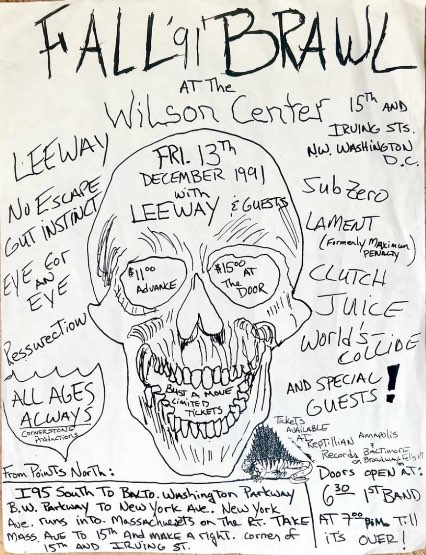 FALL '91' BRAWL
AT THE
Wilson Center
15th AND
IRVING STS.
N.W. WASHINGTON
D.C.
LEEWAY
NO ESCAPE
GUT INSTINCT
EYE for
AN
EYE
Ressurection
FRI. 13th
DECEMBER 1991
with
LEEWAY & GUESTS
$11.00
ADVANCE
$15.00
AT
The
DOOR
BUST A MOVE
LIMITED
TICKETS
SubZero
LAMENT
(formerly Maximum
PENALTY)
CLUTCH
JUICE
World's
COLLIDE
AND SPECIAL
GUESTS!
ALL AGES
ALWAYS
CORNERSTONE
Productions
Tickets
AVAILABLE
AT
Reptillian
Records
Annapolis
&
Baltimore
on Broadway
Doors OPEN AT:
6:30 1ST BAND
AT 7:00 P.M. Till
iT'S OVER!
From Points North:
I95 South To Balto. Washington Parkway
B.W. Parkway to New York Ave. New York
Ave. runs into Massachusetts on the RT. TAKE
MASS. AVE TO 15th and make a right. corner of
15th AND IRVING ST.